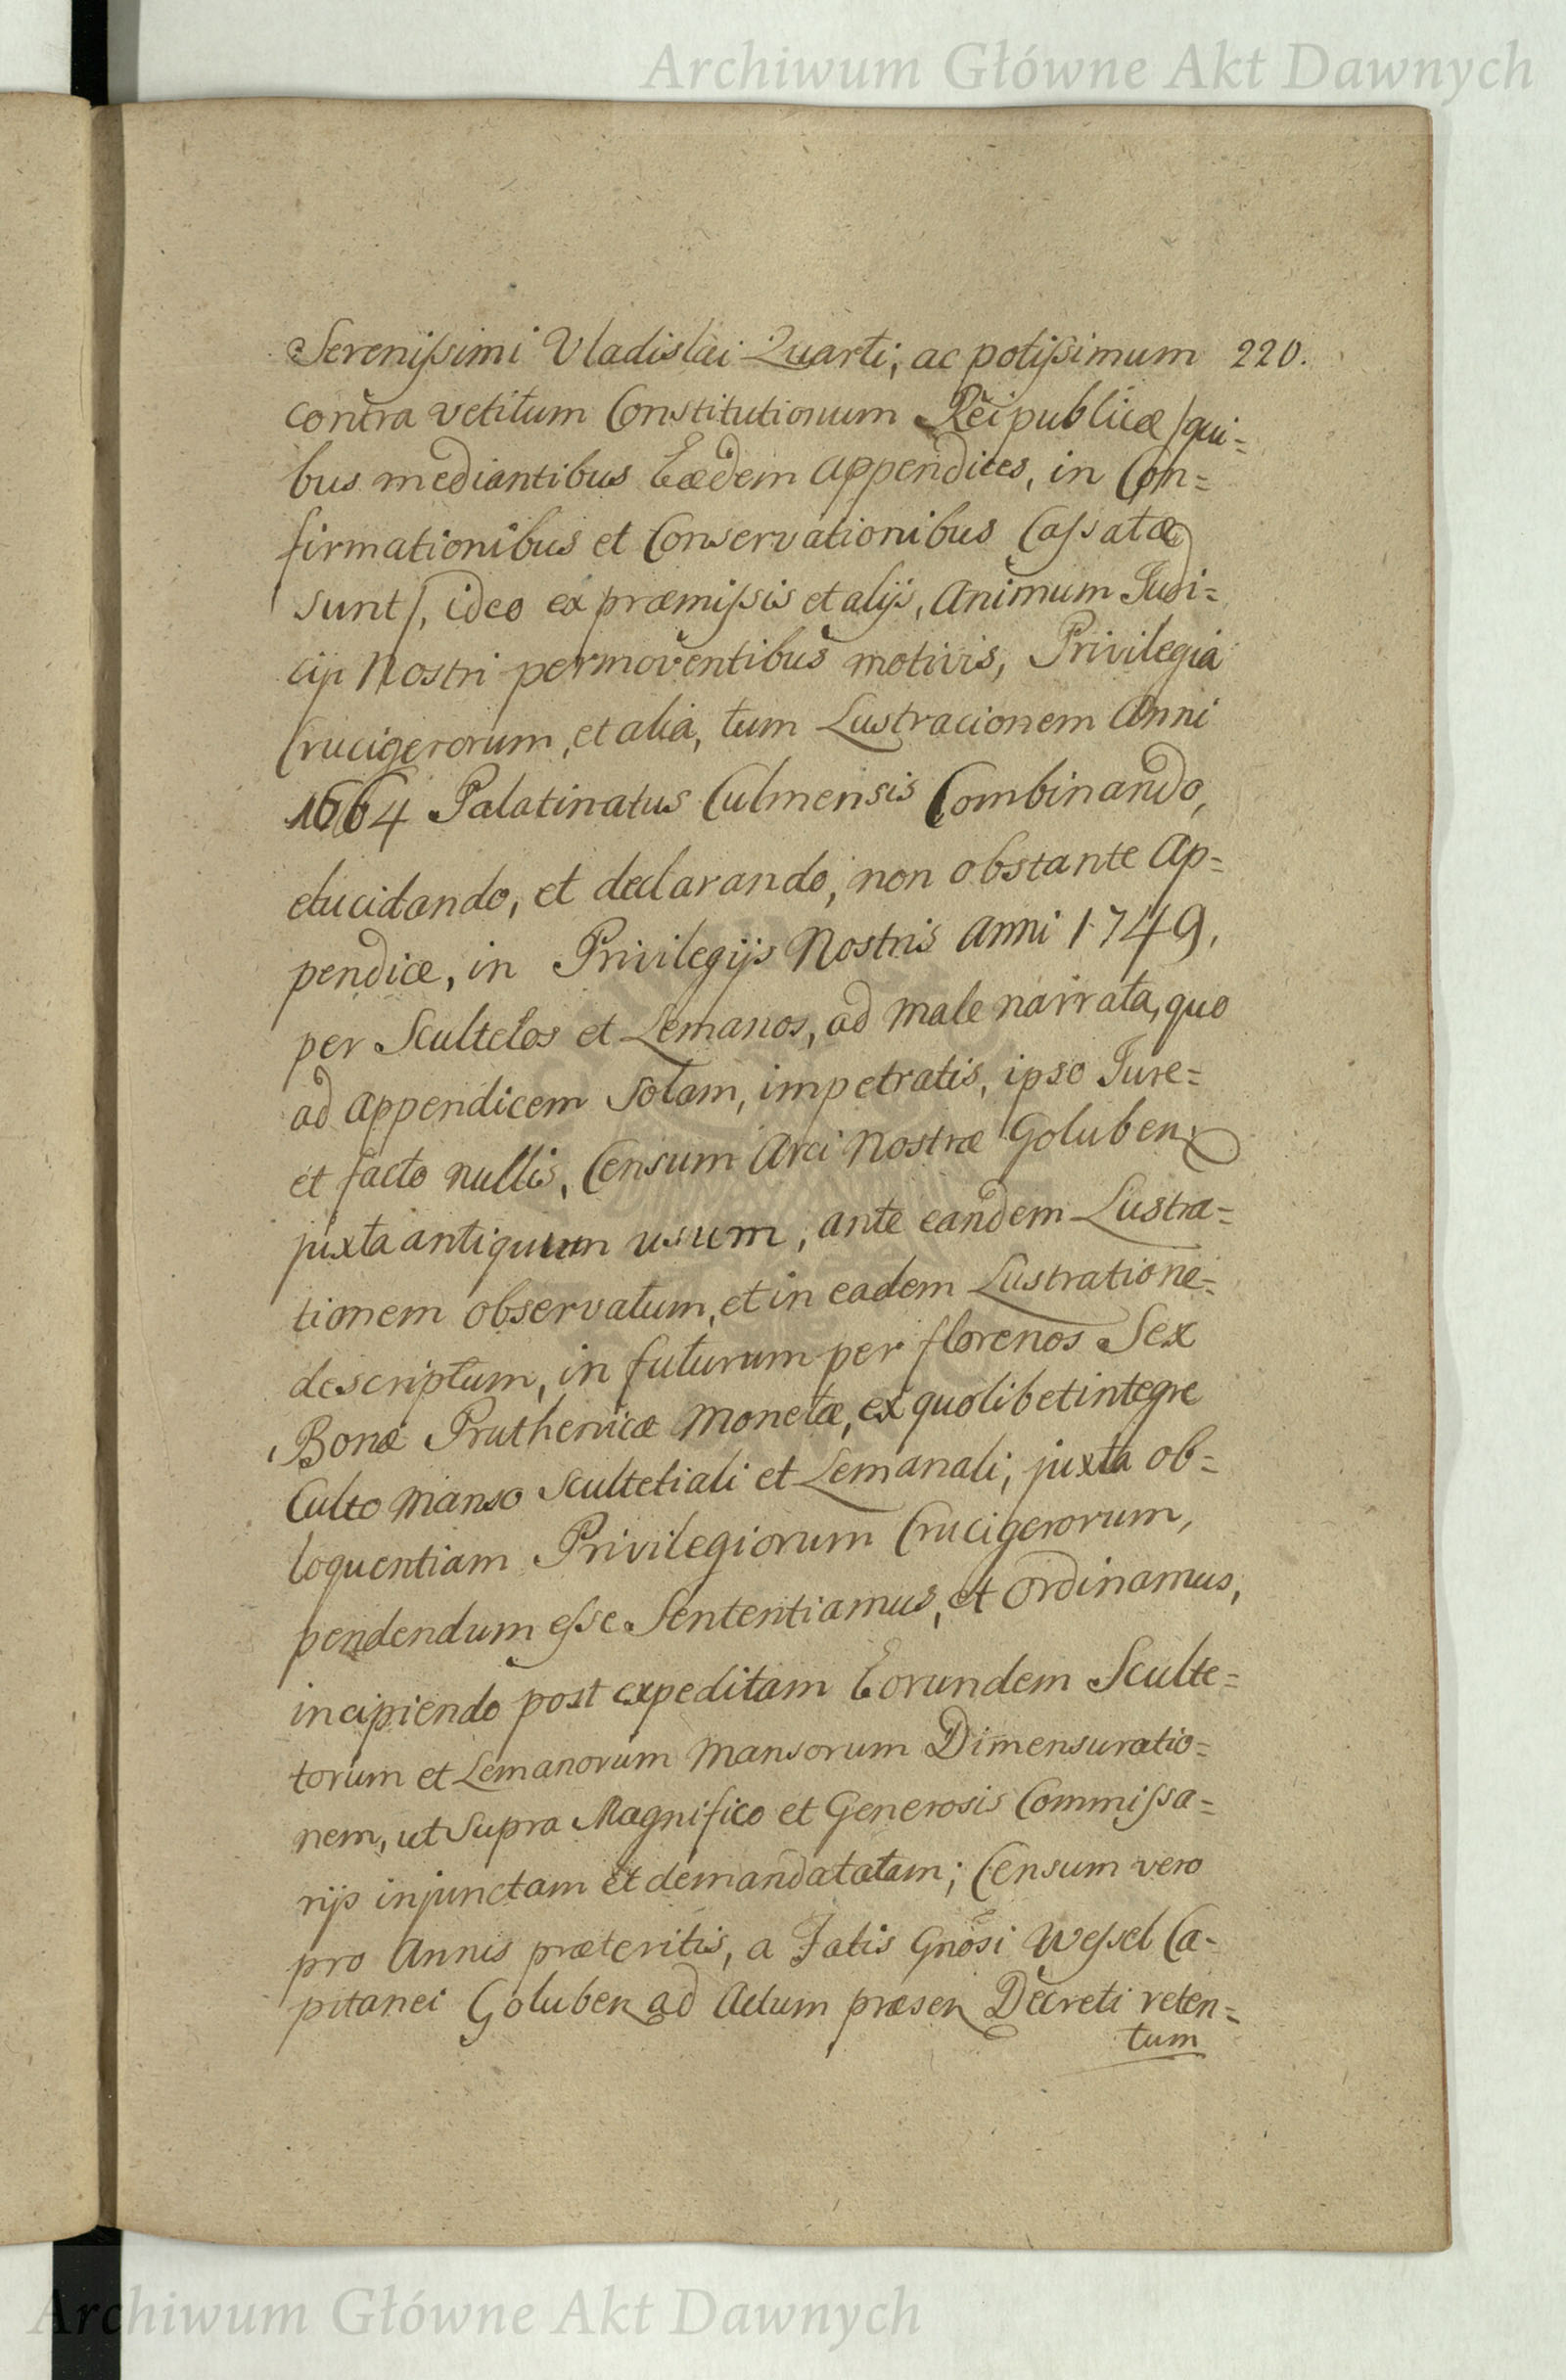 Archiwum Główne Akt Dawnych
Serenissimi Vladislai Quarti, ac potissimum 220.
contra vetitum Constitutionum Reipublicæ /qui=
bus mediantibus Eædem appendices, in Con=
firmationibus et Conservationibus Cassatæ
sunt/, ideo ex præmissis et alijs, Animum Judi=
cij Nostri permoventibus motivis, Privilegia
Crucigerorum, et alia, tum Lustracionem Anni
1664 Palatinatus Culmensis Combinando,
elucidando, et declarando, non obstante Ap=
pendice, in Privilegijs Nostris Anni 1749,
per Scultetos et Lemanos, ad male narrata, quo
ad appendicem solam, impetratis, ipso Jure=
et facto nullis, Censum Arci Nostræ Goluben
juxta antiquum usum, ante eandem Lustra=
tionem observatum, et in eadem Lustratione=
descriptum, in futurum per florenos Sex
Bonæ Pruthenicæ Monetæ, ex quolibet integre
Culto Manso Scultetiali et Lemanali, juxta ob=
loquentiam Privilegiorum Crucigerorum,
pendendum esse Sententiamus, et Ordinamus,
incipiendo post expeditam Eorundem Sculte=
torum et Lemanorum Mansorum Dimensuratio=
nem, ut supra Magnifico et Generosis Commissa=
rijs injunctam et demandatatam; Censum vero
pro Annis præteritis, a Fatis Gnosi Wessel Ca=
pitanei Goluben ad Actum præsen Decreti reten=
tum
Archiwum Główne Akt Dawnych